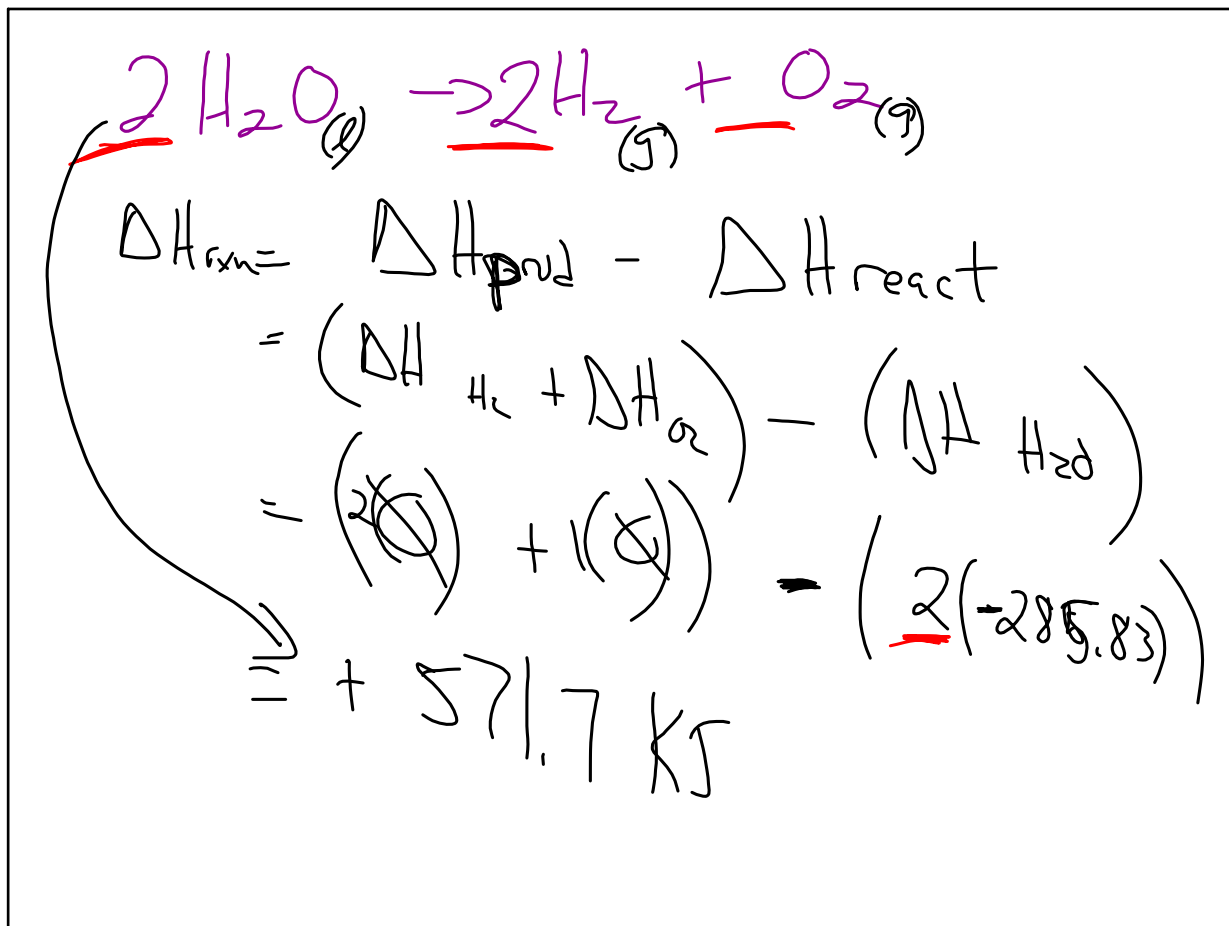 2H₂O(l) → 2H₂(g) + O₂(g)
ΔHrxn = ΔHprod - ΔHreact
= (ΔH H₂ + ΔH O₂) - (ΔH H₂O)
= (2(0) + 1(0)) - (2(-285.83))
= + 571.7 KJ